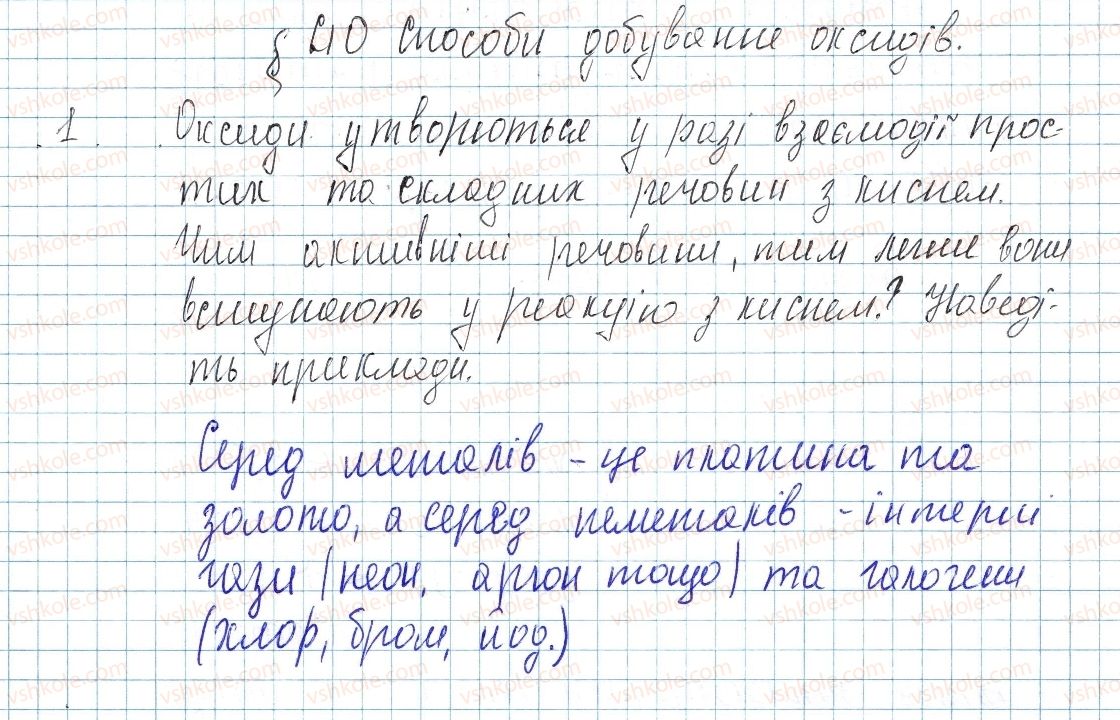 § 40 Способи добування оксидів.
1. Оксиди утворюються у разі взаємодії прос-
тих та складних речовин з киснем.
Чим активніші речовини, тим легше вони
вступають у реакцію з киснем? Наведі-
ть приклади.
Серед металів - це платина та
золото, а серед неметалів - інертні
гази (неон, аргон тощо) та галогени
(хлор, бром, йод.)